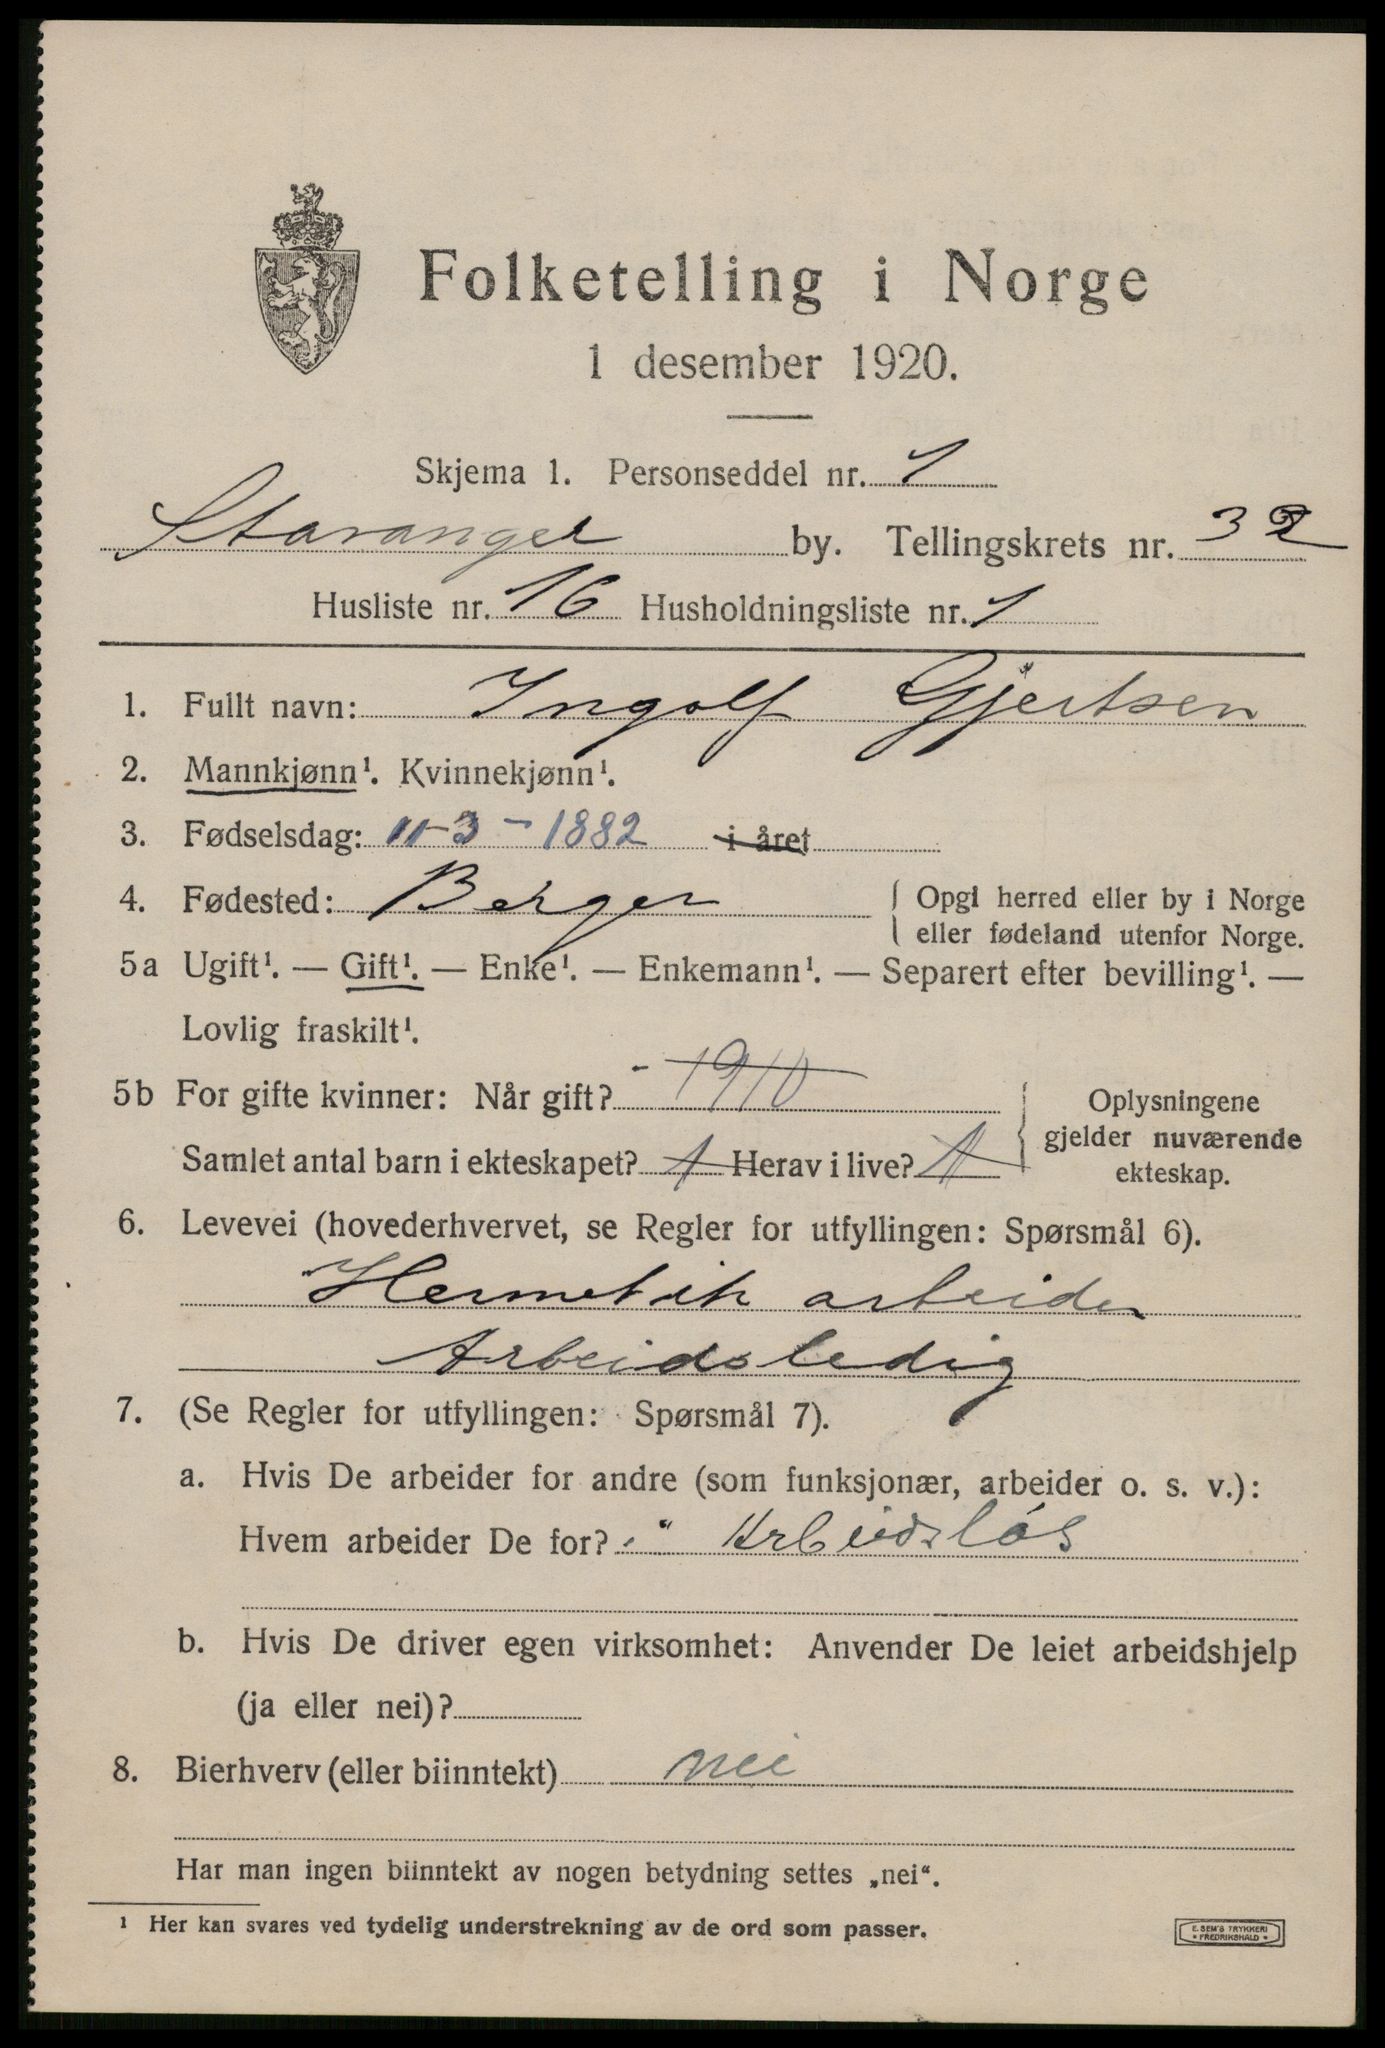 Folketelling i Norge
1 desember 1920.
Skjema 1. Personseddel nr. 1
Stavanger by. Tellingskrets nr. 32
Husliste nr. 16 Husholdningsliste nr. 1
1. Fullt navn: Ingolf Gjertsen
2. Mannkjønn¹. Kvinnekjønn¹.
3. Fødselsdag: 11-3-1882 i året
4. Fødested: Berger { Opgi herred eller by i Norge
eller fødeland utenfor Norge.
5a Ugift¹. — Gift¹. — Enke¹. — Enkemann¹. — Separert efter bevilling¹. —
Lovlig fraskilt¹.
5b For gifte kvinner: Når gift? - 1910 { Oplysningene
gjelder nuværende
ekteskap.
Samlet antal barn i ekteskapet? 1 Herav i live? 1
6. Levevei (hovederhvervet, se Regler for utfyllingen: Spørsmål 6).
Hermetik arbeider
Arbeidsledig
7. (Se Regler for utfyllingen: Spørsmål 7).
a. Hvis De arbeider for andre (som funksjonær, arbeider o. s. v.):
Hvem arbeider De for? Arbeidsløs
b. Hvis De driver egen virksomhet: Anvender De leiet arbeidshjelp
(ja eller nei)?
8. Bierhverv (eller biinntekt) nei
Har man ingen biinntekt av nogen betydning settes „nei“.
¹ Her kan svares ved tydelig understrekning av de ord som passer.
E. SEM'S TRYKKERI
* FREDRIKSHALD *